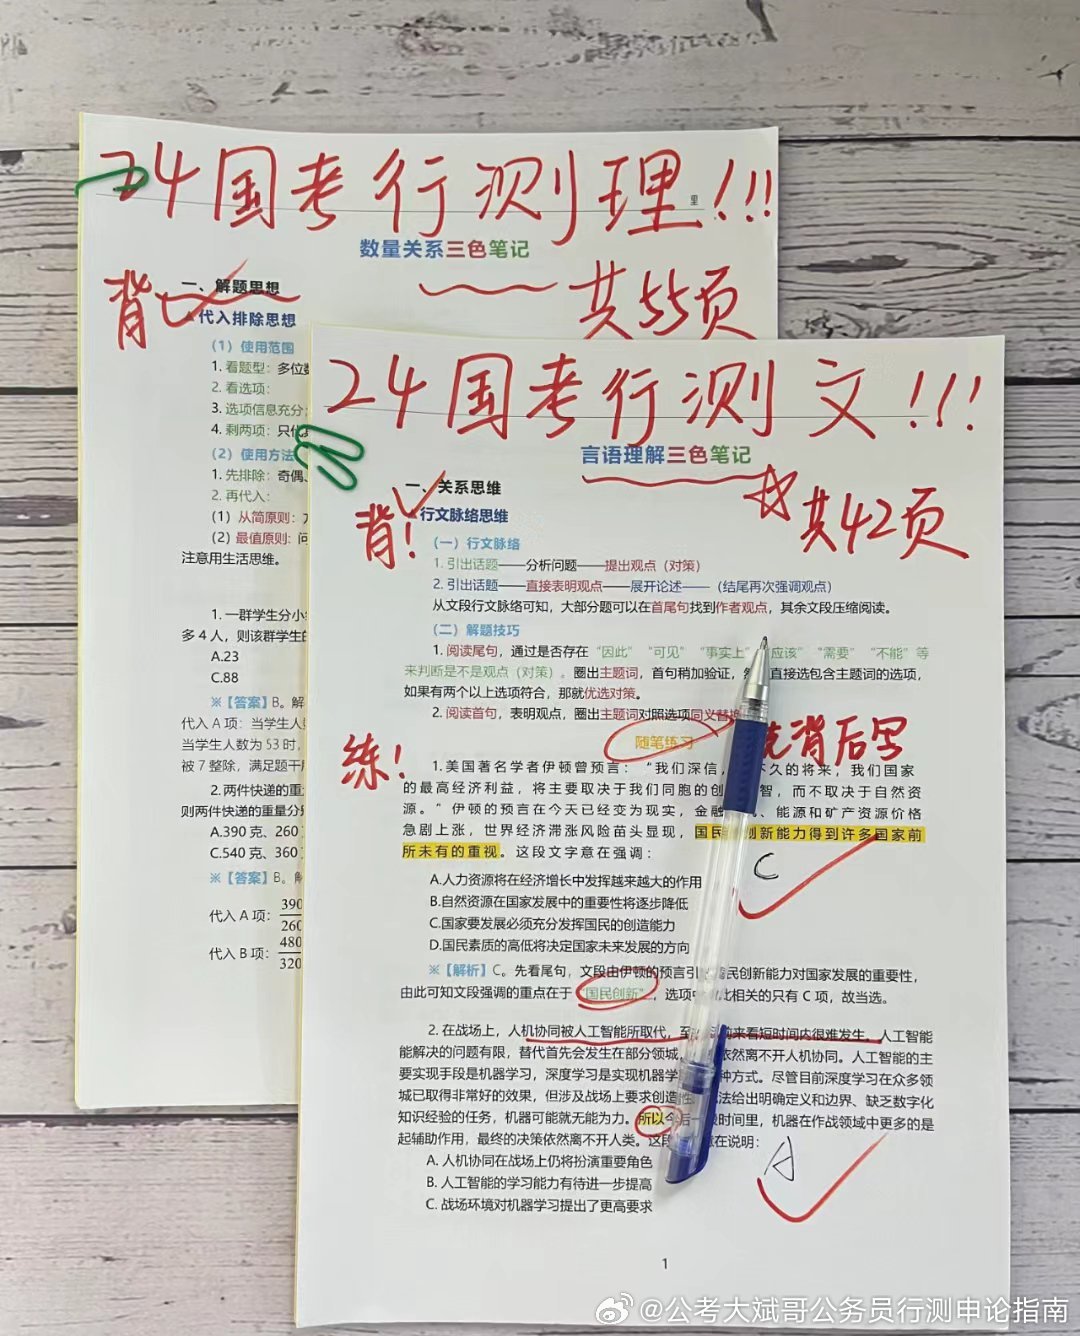 24国考行测理!!!
里
数量关系三色笔记
共55页
背
一、解题思想
代入排除思想
(1) 使用范围
1. 看题型：多位数
2. 看选项：
3. 选项信息充分
4. 剩两项：只代
(2) 使用方法
1. 先排除：奇偶、
2. 再代入：
(1) 从简原则：
(2) 最值原则：问
注意用生活思维。
1. 一群学生分小
多 4 人，则该群学生的
A.23
C.88
※【答案】B。解
代入 A 项：当学生人
当学生人数为 53 时，
被 7 整除，满足题干
2. 两件快递的重
则两件快递的重量分别
A.390 克、260
C.540 克、360
※【答案】B。解
代入 A 项：390/260
代入 B 项：480/320
24国考行测文!!!
言语理解三色笔记
共42页
背!
一、关系思维
行文脉络思维
（一）行文脉络
1. 引出话题——分析问题——提出观点（对策）
2. 引出话题——直接表明观点——展开论述——（结尾再次强调观点）
从文段行文脉络可知，大部分题可以在首尾句找到作者观点，其余文段压缩阅读。
（二）解题技巧
1. 阅读尾句，通过是否存在“因此”“可见”“事实上”“应该”“需要”“不能”等
来判断是不是观点（对策）。圈出主题词，首句稍加验证，然 直接选包含主题词的选项，
如果有两个以上选项符合，那就优选对策。
2. 阅读首句，表明观点，圈出主题词对照选项同义替换
随笔练习
背后写
练!
1. 美国著名学者伊顿曾预言：“我们深信， 不久的将来，我们国家
的最高经济利益，将主要取决于我们同胞的创 智，而不取决于自然资
源。”伊顿的预言在今天已经变为现实，金融 、能源和矿产资源价格
急剧上涨，世界经济滞涨风险苗头显现，国民 创新能力得到许多国家前
所未有的重视。这段文字意在强调：
C
A.人力资源将在经济增长中发挥越来越大的作用
B.自然资源在国家发展中的重要性将逐步降低
C.国家要发展必须充分发挥国民的创造能力
D.国民素质的高低将决定国家未来发展的方向
※【解析】C。先看尾句，文段由伊顿的预言引 国民创新能力对国家发展的重要性，
由此可知文段强调的重点在于“国民创新”，选项中 此相关的只有 C 项，故当选。
2. 在战场上，人机协同被人工智能所取代，至 前来看短时间内很难发生。人工智能
能解决的问题有限，替代首先会发生在部分领域， 依然离不开人机协同。人工智能的主
要实现手段是机器学习，深度学习是实现机器学 种方式。尽管目前深度学习在众多领
域已取得非常好的效果，但涉及战场上要求创造性 法给出明确定义和边界、缺乏数字化
知识经验的任务，机器可能就无能为力。所以今后一段时间里，机器在作战领域中更多的是
起辅助作用，最终的决策依然离不开人类。这段 意在说明：
A
A. 人机协同在战场上仍将扮演重要角色
B. 人工智能的学习能力有待进一步提高
C. 战场环境对机器学习提出了更高要求
1
@公考大斌哥公务员行测申论指南